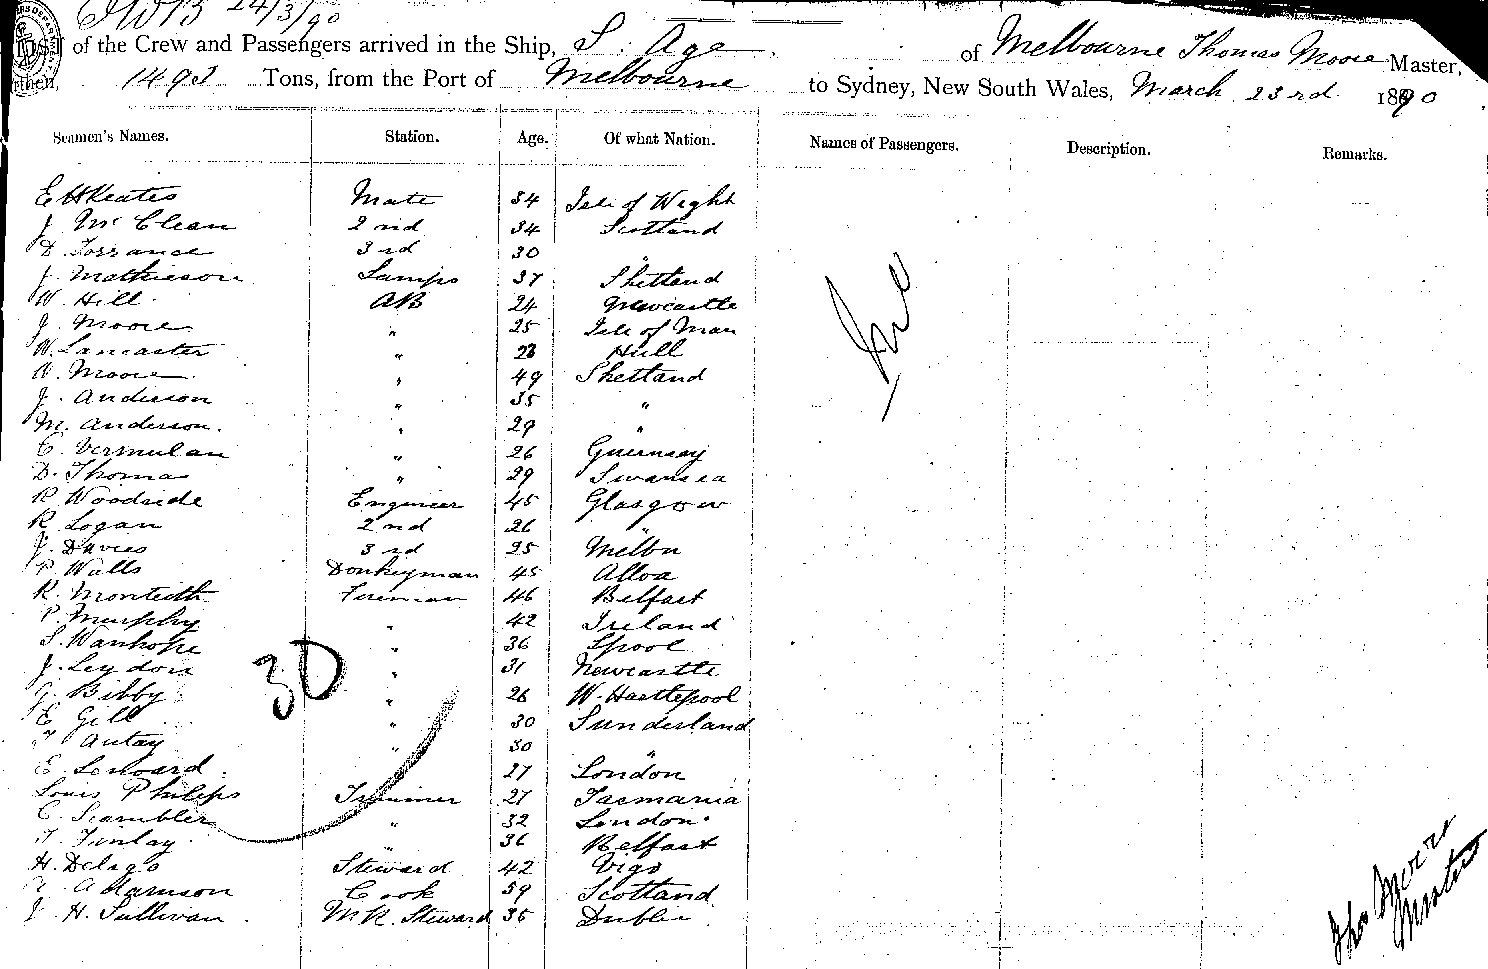 24/3/90
of the Crew and Passengers arrived in the Ship, S. Age of Melbourne Thomas Moore Master,
1493 Tons, from the Port of Melbourne to Sydney, New South Wales, March 23rd 1890
Seamen's Names. Station. Age. Of what Nation. Names of Passengers. Description. Remarks.
E H Keates Mate 34 Isle of Wight
J. McClean 2nd 34 Scotland
D. Torrance 3rd 30 "
J. Mathieson Lamps 37 Shetland
W. Hill AB 24 Newcastle
J. Moore " 25 Isle of Man
W. Lancaster " 23 Hull
W. Moore " 49 Shetland
J. Anderson " 35 "
M. Anderson. " 29 "
C. Vermulan " 26 Guernsey
D. Thomas " 29 Swansea
R. Woodside Engineer 45 Glasgow
R. Logan 2nd 26 "
J. Davies 3rd 25 Melbn
P. Walls Donkeyman 45 Alloa
R. Monteith Fireman 46 Belfast
P. Murphy " 42 Ireland
S. Wanhope " 36 Lpool
J. Leydon " 31 Newcastle
G. Bibby " 26 W. Hartlepool
E Gill " 30 Sunderland
T Autay " 30 "
E. Lenoard 27 London
Louis Philips Trimmer 27 Tasmania
C. Scambler " 32 London
T. Finlay " 36 Belfast
H. Delago Steward 42 Vigo
Adamson Cook 59 Scotland
J H. Sullivan M.R. Steward 35 Dublin
30
Thos Moore
Master